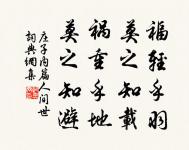 福輕乎羽
莫之知載
禍重乎地
莫之知避
庄子内篇人间世
詞典網集